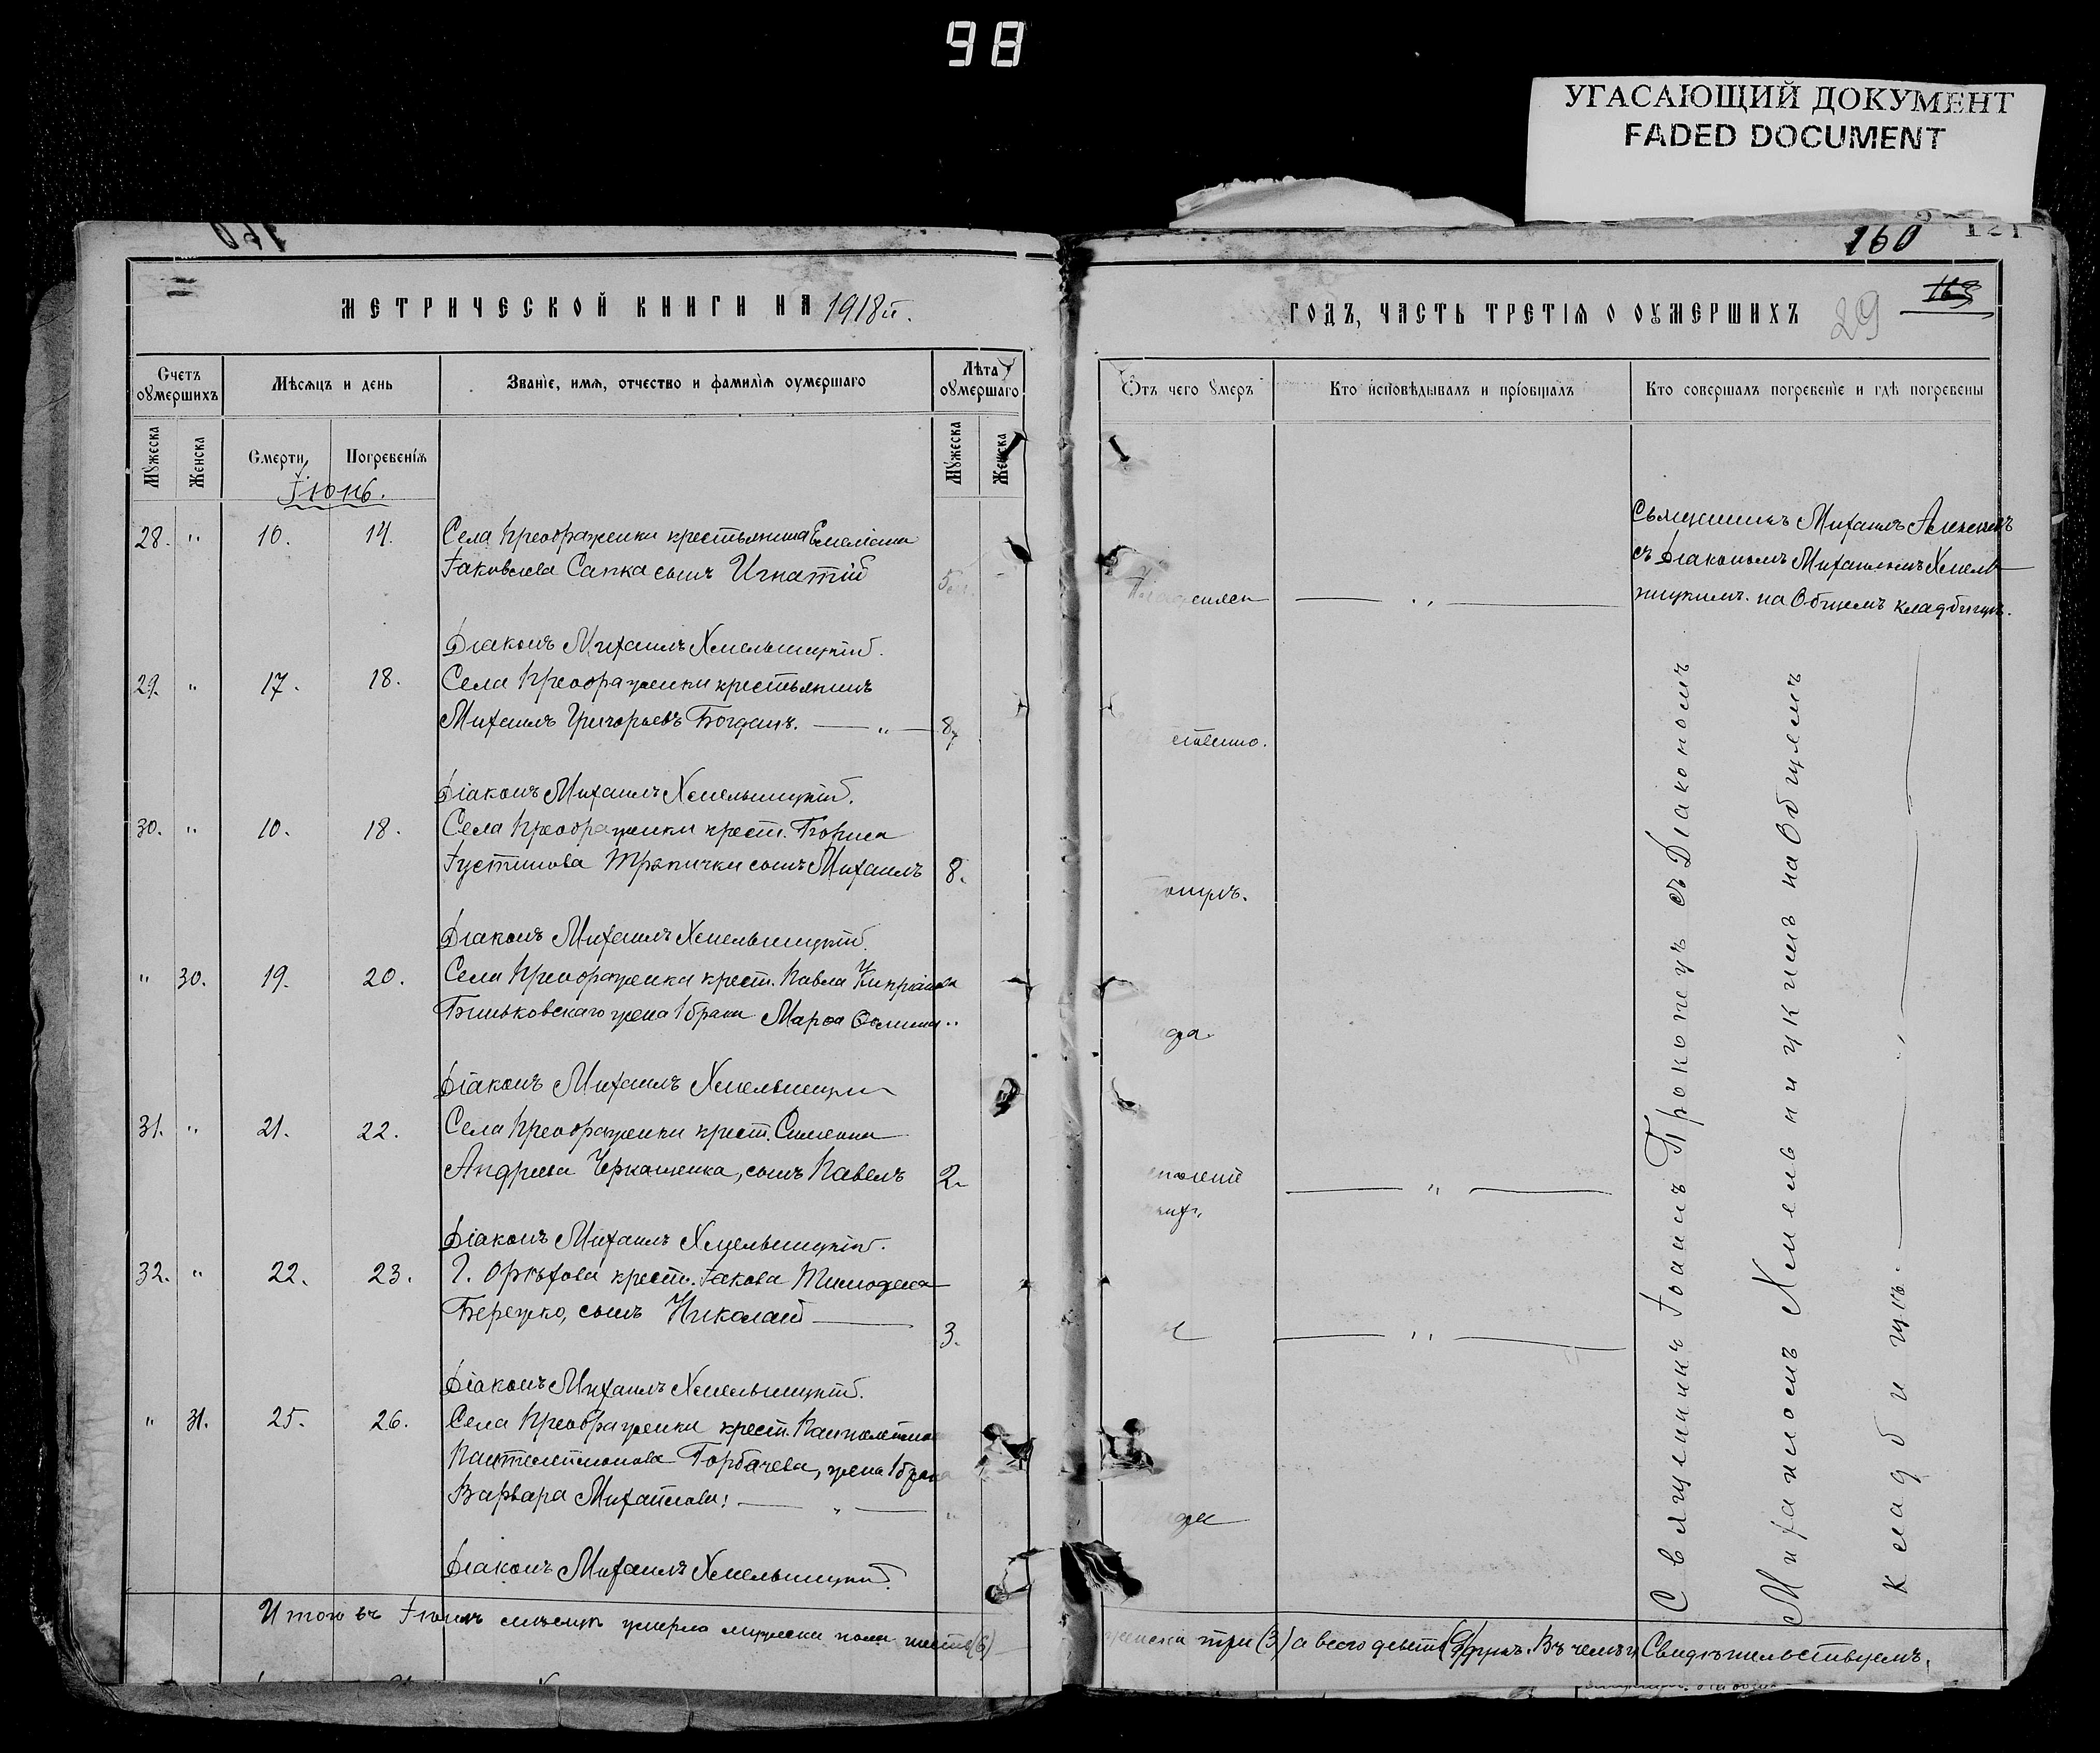 98
УГАСАЮЩИЙ ДОКУМЕНТ
FADED DOCUMENT
160
МЕТРИЧЕСКОЙ КНИГИ НА 1918й.
Счетъ оумершихъ
Мѣсяцъ и день
Званіе, имя, отчество и фамилія оумершаго
Лѣта оумершаго
Мужеска
Женска
Смерти,
Погребенія
Мужеска
Женска
Іюнь.
28. " 10. 14. Села Преображенки крестьянина Емеліана
Іаковлева Сапка сынъ Игнатій
Діаконъ Михаилъ Хмельницкій.
29. " 17. 18. Села Преображенки крестьянинъ
Михаилъ Григорьевъ Богданъ. — " — 87
Діаконъ Михаилъ Хмельницкій.
30. " 10. 18. Села Преображенки крест.
Іустинова Тряпички сынъ Михаилъ 8.
Діаконъ Михаилъ Хмельницкій.
" 30. 19. 20. Села Преображенка крест. Павла Кипріанова
жена 1 брака Марѳа
Діаконъ Михаилъ Хмельницкі
31. " 21. 22. Села Преображенки крест. Симеона
Андреева Черкашенка, сынъ Павелъ 2.
Діаконъ Михаилъ Хмельницкій.
32. " 22. 23. Г. Орѣхова крест. Іакова
Бережко, сынъ Николай — 3.
Діаконъ Михаилъ Хмельницкій.
" 31. 25. 26. Села Преображенки крест.
Пантелеимонова Горбачева, жена 1 брака
Варвара Михайлова: — " —
Діаконъ Михаилъ Хмельницкій.
Итого въ Іюнѣ мѣсяцѣ умерло мужеска пола шесть (6)
160
163
29
ГОДЪ, ЧАСТЬ ТРЕТІЯ О ОУМЕРШИХЪ
Ѿтъ чего умеръ
Кто исповѣдывалъ и пріобщалъ
Кто совершалъ погребеніе и гдѣ погребены
Священникъ Михаилъ
съ Діакономъ Михаиломъ Хмель
ницкимъ. на Общемъ кладбищѣ.
— " —
ственно.
— " —
— " —
Священникъ Іоаннъ Прокопецъ съ Діакономъ
Михаиломъ Хмельницкимъ на Общемъ
кладбищѣ. — " —
женска три (3) а всего девять (9) душъ. Въ чемъ и Свидѣтельствуемъ.